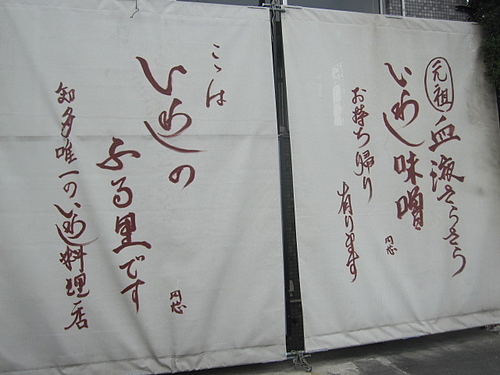 元祖
血液さらさら
いわし味噌
お持ち帰り
有ります
円芯
ここは
いわしの
ふる里です
知多唯一のいわし料理店
円芯